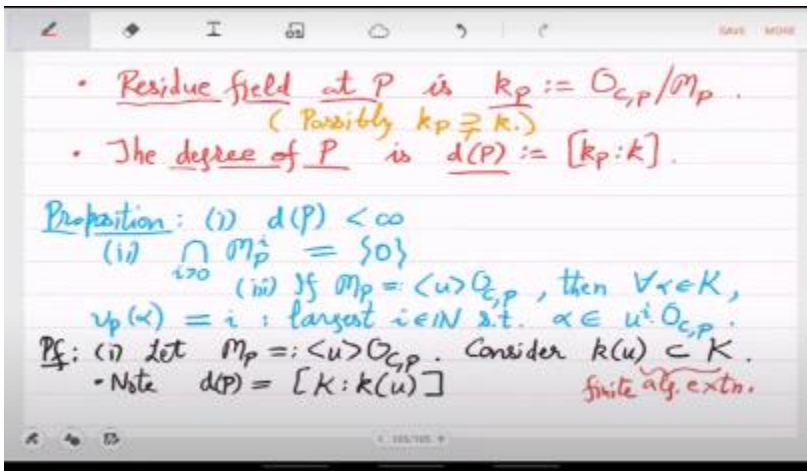 SAVE MORE
• Residue field at P is k_P := O_{C,P}/m_P .
( Possibly k_P ⊋ k. )
• The degree of P is d(P) := [k_P : k] .
Proposition: (i) d(P) < ∞
(ii) ⋂_{i>0} m_P^i = {0}
(iii) If m_P =: <u>O_{C,P} , then ∀α∈K,
v_P(α) = i : largest i∈ℕ s.t. α ∈ u^i.O_{C,P} .
Pf: (i) Let m_P =: <u>O_{C,P} . Consider k(u) ⊂ K .
• Note d(P) = [K : k(u)] finite alg. extn.
105/105